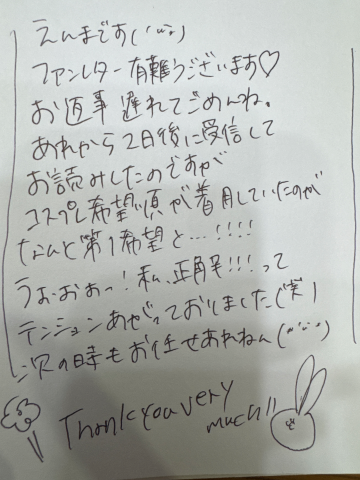 えんまです(´ω`)
ファンレター有難うございます♡
お返事遅れてごめんね。
あれから2日後に受信して
お読みしたのですが
コスプレ希望順が着用していたのが
なんと第1希望と…!!!!
うおおおっ!私、正解!!!って
テンションあがっておりました(笑)
次の時もお任せあれねん(´ω`)
Thank you very
much!!